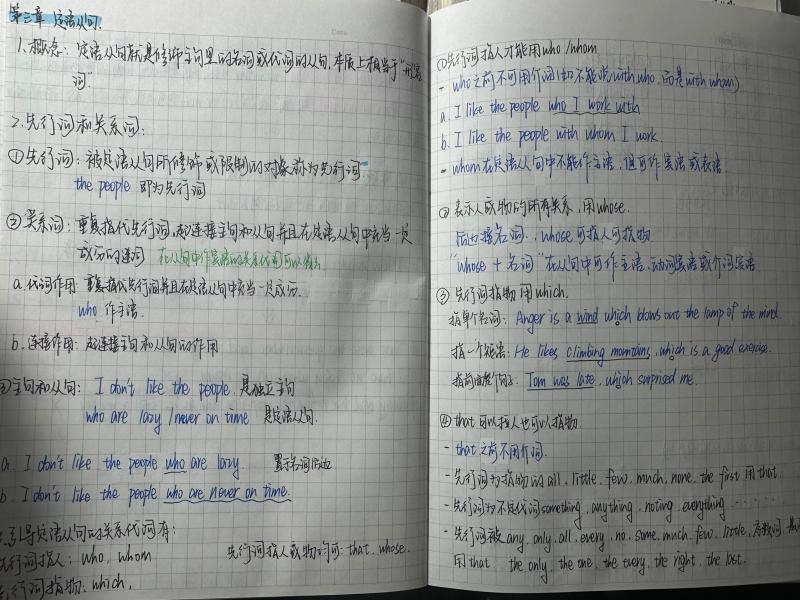 第三章 定语从句.
1.概念: 定语从句就是修饰主句里的名词或代词的从句,本质上相当于"形容
词".
2.先行词和关系词:
①先行词: 被定语从句所修饰或限制的对象称为先行词
the people 即为先行词
②关系词: 重复指代先行词,起连接主句和从句并且在定语从句中充当一定
成分的连词 在从句中作宾语的关系代词可以省
a.代词作用: 重复指代先行词并且在定语从句中充当一定成份.
who 作主语.
b.连接作用: 起连接主句和从句的作用
③主句和从句: I don't like the people. 是独立主句
who are lazy / never on time 是定语从句.
a. I don't like the people who are lazy. 置于名词后边
b. I don't like the people who are never on time.
引导定语从句的关系代词有:
先行词指人: who, whom 先行词指人或物均可: that, whose.
先行词指物: which,
①先行词指人才能用who/whom
- who之前不可用介词(如不能说with who, 而是with whom)
a. I like the people who I work with
b. I like the people with whom I work.
- whom在定语从句中不能作主语,但可作宾语或表语.
② 表示人或物的所有关系,用whose.
后边接名词., whose可指人可指物
"whose + 名词"在从句中可作主语、动词宾语或介词宾语
③ 先行词指物用which.
指单个名词: Anger is a wind which blows out the lamp of the mind.
指一个短语: He likes climbing mountains, which is a good exercise.
指前面整个句子: Tom was late, which surprised me.
④ that可以指人也可以指物.
- that之前不用介词.
- 先行词为指物的all, little, few, much, none, the first 用that.
- 先行词为不定代词something, anything, noting, everything ......
- 先行词被any, only, all, every, no, some, much, few, little, 序数词,
用that. the only, the one, the every, the right, the last.